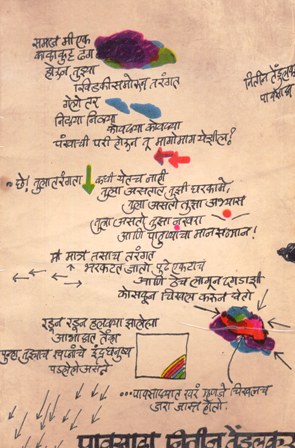 समजा मी एक
काळाकुट्ट ढग
होऊन तुझ्या
खिडकीसमोरून तरंगत
गेलो तर
निळ्या निळ्या
कोवळ्या कोवळ्या
पंखांची परी होऊन तू मागोमाग येशील?
छे! तुला तरंगता कधी येतच नाही
तुला असतात तुझी घरकामे,
तुला असतो तुझा अभ्यास
तुला असतो तुझा नखरा
आणि चारचौघांचा मानसन्मान!
मी मात्र तसाच तरंगत
भरकटत जातो पुढे एकटाच
आणि ठेच लागून दगडाशी
कोसळून चिखल करून घेतो
रडून रडून हलक्या झालेल्या
आभाळात तेव्हा
तुझ्याच स्वप्नांचे इंद्रधनुष्य
पडलेले असते
...पावसाळ्यात म्हणे चिखलच
जरा जास्त होतो.
नितीन तेंडुलकर
पावसाचा नितीन तेंडुलकर